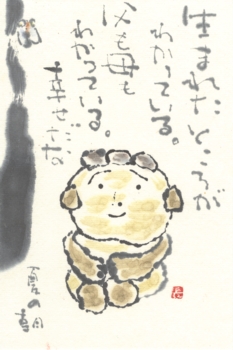 生まれたところが
わかっている。
父も母も
わかっている。
幸せだな